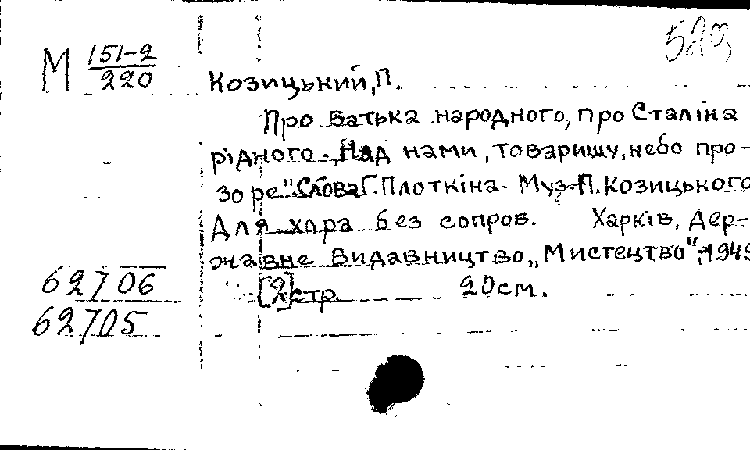 М 151-2
220
Козицький, П.
Про батька народного, про Сталіна
рідного. „Над нами, товаришу, небо про-
зоре". Слова Г. Плоткіна. Муз. П. Козицького
Для хора без сопров. Харків, Дер-
жавне Видавництво „Мистецтво", 1949
[2] стр. 20 см.
62706
62705